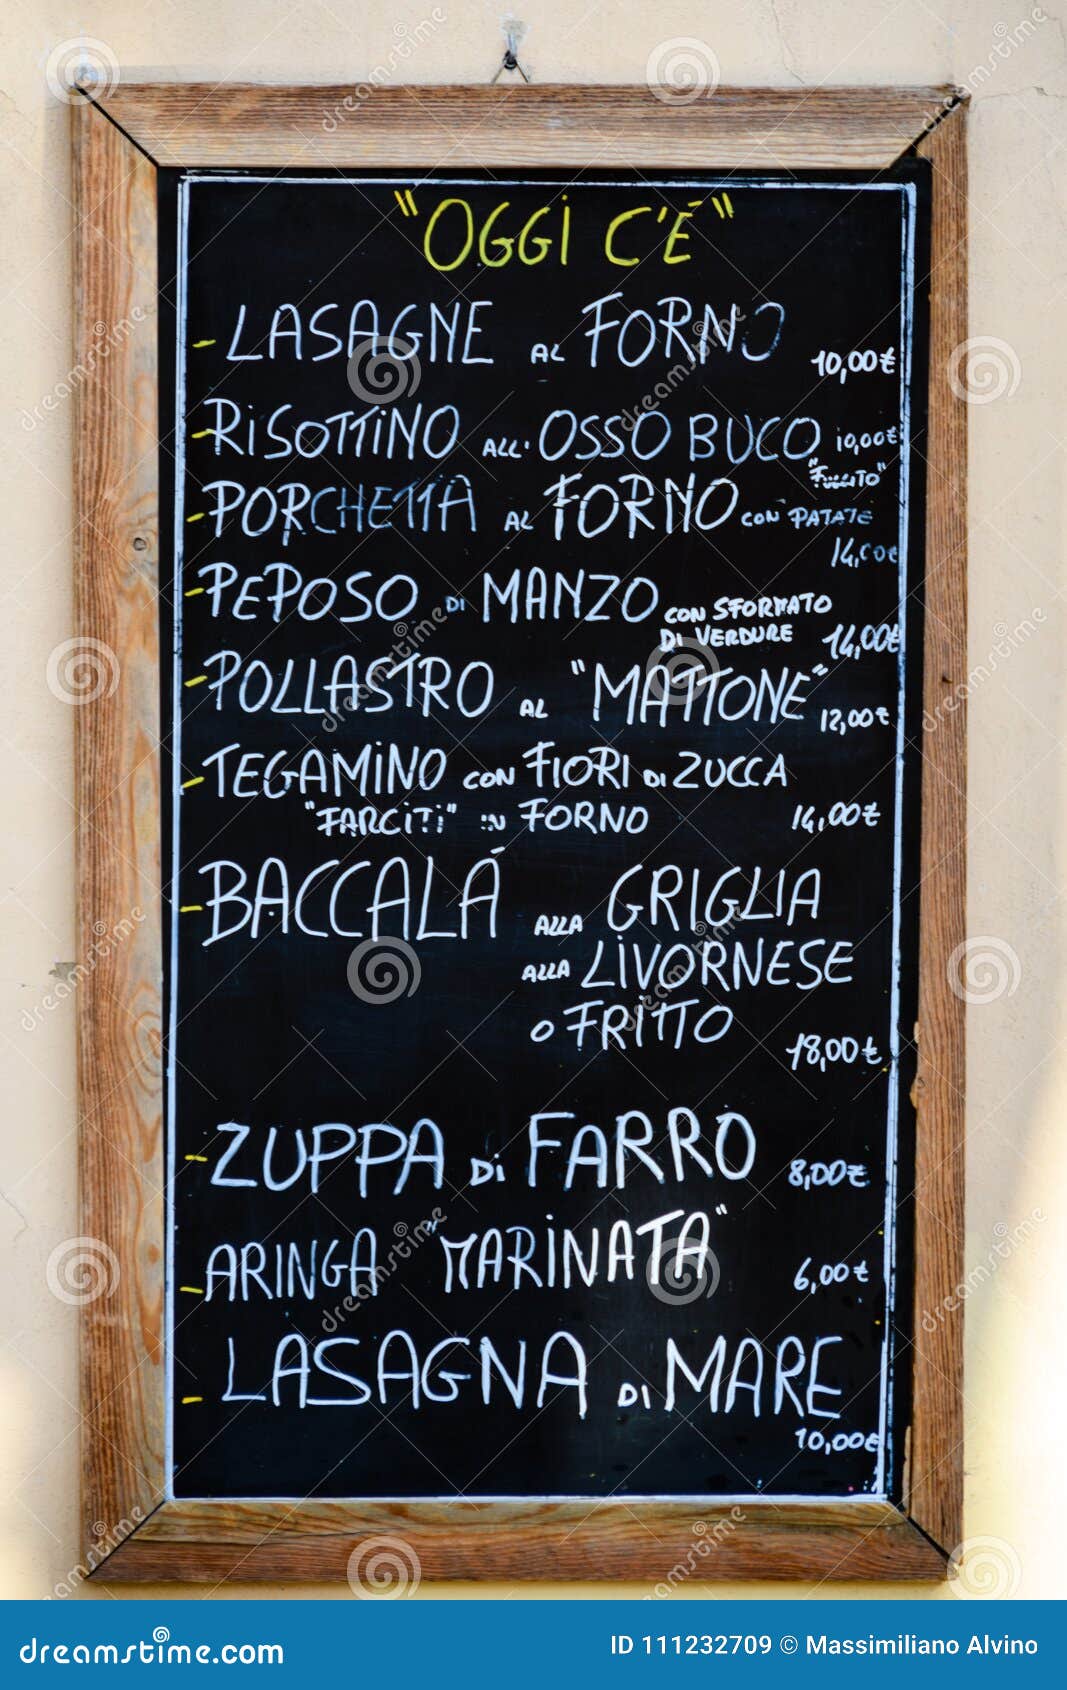 "OGGI C'É"
- LASAGNE AL FORNO 10,00€
- RISOTTINO ALL' OSSO BUCO 10,00€
- PORCHETTA AL FORNO CON PATATE
14,00€
- PEPOSO DI MANZO CON SFORMATO
DI VERDURE 14,00€
- POLLASTRO AL "MATTONE" 12,00€
- TEGAMINO CON FIORI DI ZUCCA
"FARCITI" IN FORNO 14,00€
- BACCALÁ ALLA GRIGLIA
ALLA LIVORNESE
O FRITTO
18,00€
- ZUPPA DI FARRO 8,00€
- ARINGA "MARINATA" 6,00€
- LASAGNA DI MARE
10,00€
dreamstime.com
ID 111232709 © Massimiliano Alvino